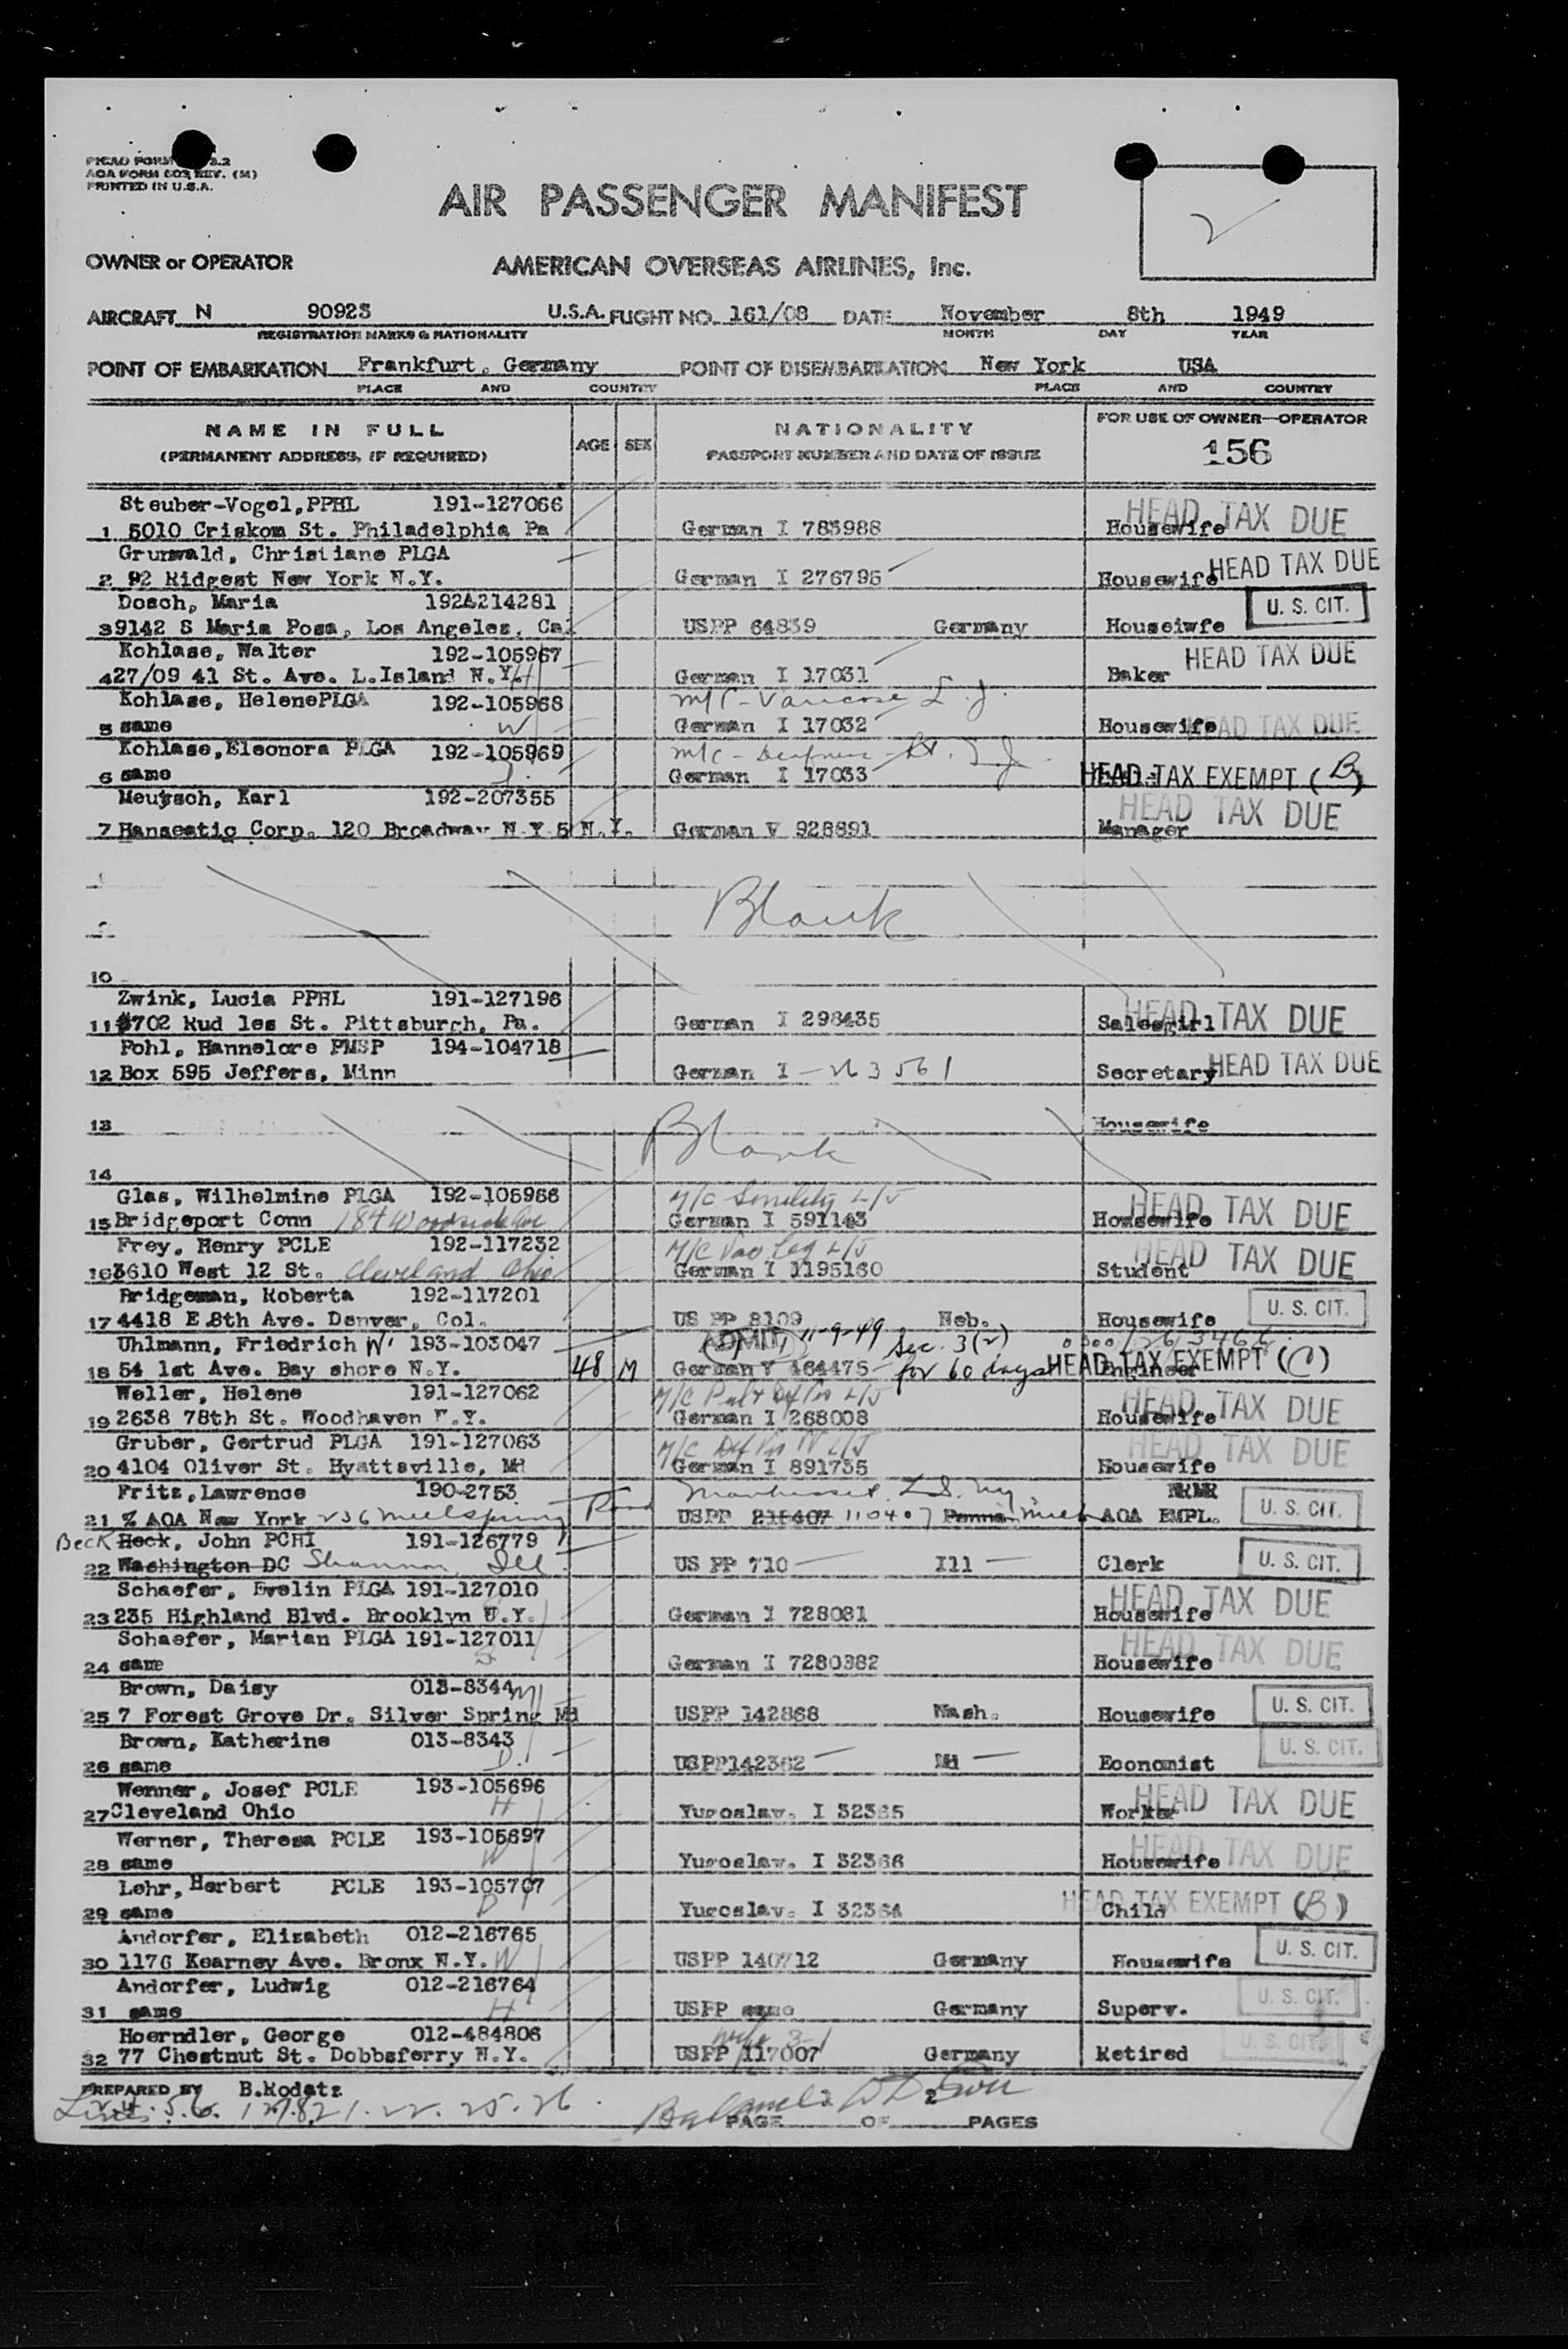 PICAO FORM 3.2
AOA FORM 603 REV. (M)
PRINTED IN U.S.A.
AIR PASSENGER MANIFEST
OWNER or OPERATOR AMERICAN OVERSEAS AIRLINES, Inc.
AIRCRAFT N 90923 U.S.A. FLIGHT NO. 161/08 DATE November 8th 1949
REGISTRATION MARKS & NATIONALITY MONTH DAY YEAR
POINT OF EMBARKATION Frankfurt, Germany POINT OF DISEMBARKATION New York USA
PLACE AND COUNTRY PLACE AND COUNTRY
NAME IN FULL AGE SEX NATIONALITY FOR USE OF OWNER—OPERATOR
(PERMANENT ADDRESS, IF REQUIRED) PASSPORT NUMBER AND DATE OF ISSUE 156
Steuber-Vogel, PPHL 191-127066 HEAD TAX DUE
1 5010 Criskom St. Philadelphia Pa German I 783988 Housewife
Grunwald, Christiane PLGA HEAD TAX DUE
2 92 Ridgest New York N.Y. German I 276795 Housewife
Dosch, Maria 192A214281 U. S. CIT.
3 9142 S Maria Posa, Los Angeles, Cal USPP 64839 Germany Houseiwfe
Kohlase, Walter 192-105967 HEAD TAX DUE
4 27/09 41 St. Ave. L.Island N.Y. H German I 17031 Baker
Kohlase, HelenePLGA 192-105968 M/C - Varicose
5 same W German I 17032 Housewife HEAD TAX DUE
Kohlase,Eleonora PLGA 192-105969 M/C -
6 same German I 17033 HEAD TAX EXEMPT (B)
Meutsch, Karl 192-207355 HEAD TAX DUE
7 Hanseatic Corp. 120 Broadway N Y 5 N.Y. German V 928891 Manager
Blank
10
Zwink, Lucia PPHL 191-127196 HEAD TAX DUE
11 5702 Rud les St. Pittsburgh, Pa. German I 298435 Salesgirl
Pohl, Hannelore PMSP 194-104718 HEAD TAX DUE
12 Box 595 Jeffers, Minn German I - 263561 Secretary
13 Blank Housewife
14
Glas, Wilhelmine PLGA 192-105966 M/C Senility L/J HEAD TAX DUE
15 Bridgeport Conn 184 Woodside Ave German I 591143 Housewife
Frey, Henry PCLE 192-117232 M/C L/J HEAD TAX DUE
16 3610 West 12 St. Cleveland Ohio German I 1195160 Student
Bridgeman, Roberta 192-117201 U. S. CIT.
17 4418 E 8th Ave. Denver, Col. US PP 8109 Neb. Housewife
Uhlmann, Friedrich 193-103047 ADMIT 11-9-49 Sec. 3(2)
18 54 1st Ave. Bay shore N.Y. 48 M German V 464475 for 60 days HEAD TAX EXEMPT (C) Engineer
Weller, Helene 191-127062 M/C L/J HEAD TAX DUE
19 2638 78th St. Woodhaven N.Y. German I 268008 Housewife
Gruber, Gertrud PLGA 191-127063 M/C L/J HEAD TAX DUE
20 4104 Oliver St. Hyattsville, Md German I 891735 Housewife
Fritz,Lawrence 190-2753 Road Manhasset, L.I. NY. U. S. CIT.
21 % AOA New York 236 USPP 218407 110407 AOA EMPL.
Beck Heck, John PCHI 191-126779 U. S. CIT.
22 Washington DC Shannon, Ill US PP 710 Ill Clerk
Schaefer, Evelin PLGA 191-127010 HEAD TAX DUE
23 235 Highland Blvd. Brooklyn N.Y. German I 728081 Housewife
Schaefer, Marian PLGA 191-127011 HEAD TAX DUE
24 same German I 7280382 Housewife
Brown, Daisy 013-8344 M U. S. CIT.
25 7 Forest Grove Dr. Silver Spring Md USPP 142868 Wash. Housewife
Brown, Katherine 013-8343 U. S. CIT.
26 same D. USPP142362 Md Economist
Wenner, Josef PCLE 193-105696 HEAD TAX DUE
27 Cleveland Ohio H Yugoslav. I 32365 Worker
Werner, Theresa PCLE 193-105697 HEAD TAX DUE
28 same W Yugoslav. I 32366 Housewife
Lehr, Herbert PCLE 193-105707 HEAD TAX EXEMPT (B)
29 same Yugoslav. I 32364 Child
Andorfer, Elizabeth 012-216765 U. S. CIT.
30 1176 Kearney Ave. Bronx N.Y. W USPP 140712 Germany Housewife
Andorfer, Ludwig 012-216764 U. S. CIT.
31 same H USPP same Germany Superv.
Hoerndler, George 012-484806 U. S. CIT.
32 77 Chestnut St. Dobbsferry N.Y. USPP 117007 Germany Retired
PREPARED BY B.Kodatz
PAGE OF 2 PAGES